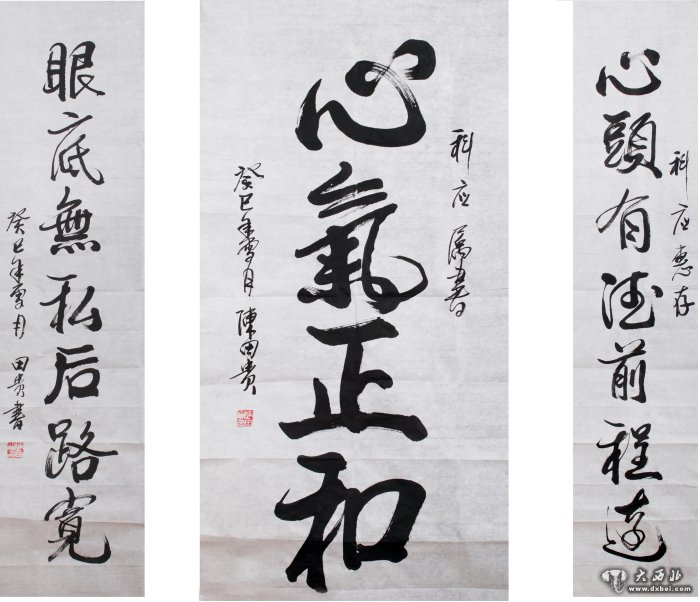 心頭有德前程遠
科应惠存
心氣正和
科应属書
癸巳年雪月 陳田貴
眼底無私后路寬
癸巳年雪月 田贵書
大西北
www.dxbei.com